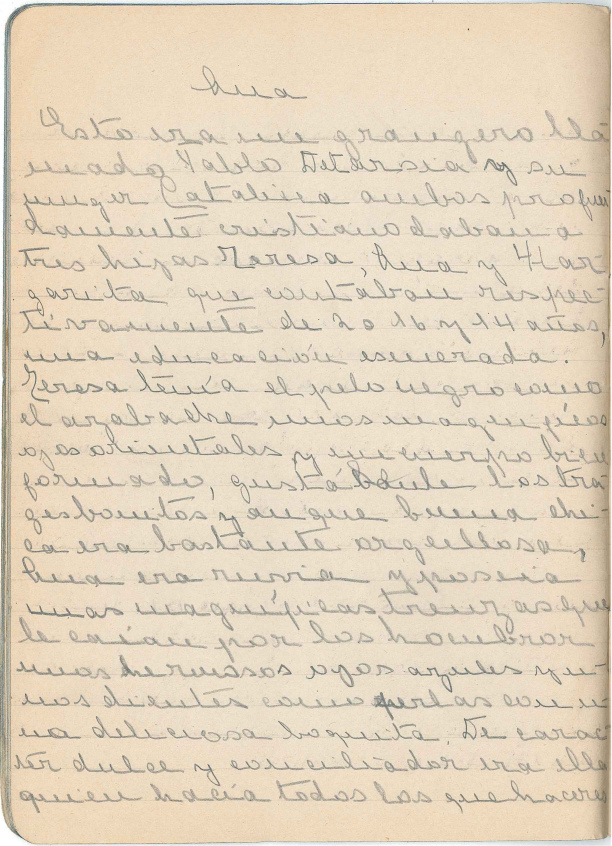 Ana
Esto era un grangero lla
mado Pablo Detarsia y su
muger Catalina ambos profun
damente cristiano daban a
tres hijas Teresa, Ana y Mar
garita que contaban respec-
tivamente de 20 16 y 14 años,
una educación esmerada.
Teresa tenía el pelo negro como
el azabache unos magnificos
ojos orientales y un cuerpo bien
formado, gustabanle los tra
ges bonitos y aunque buena chi-
ca era bastante orgullosa,
Ana era ruvia y poseia
unas magníficas trenzas que
le caian por los hombros
unos hermosos ojos azules y u-
nos dientes como perlas con u
na deliciosa boquita. De carac
ter dulce y conciliador era ella
quien hacía todos los quehaceres